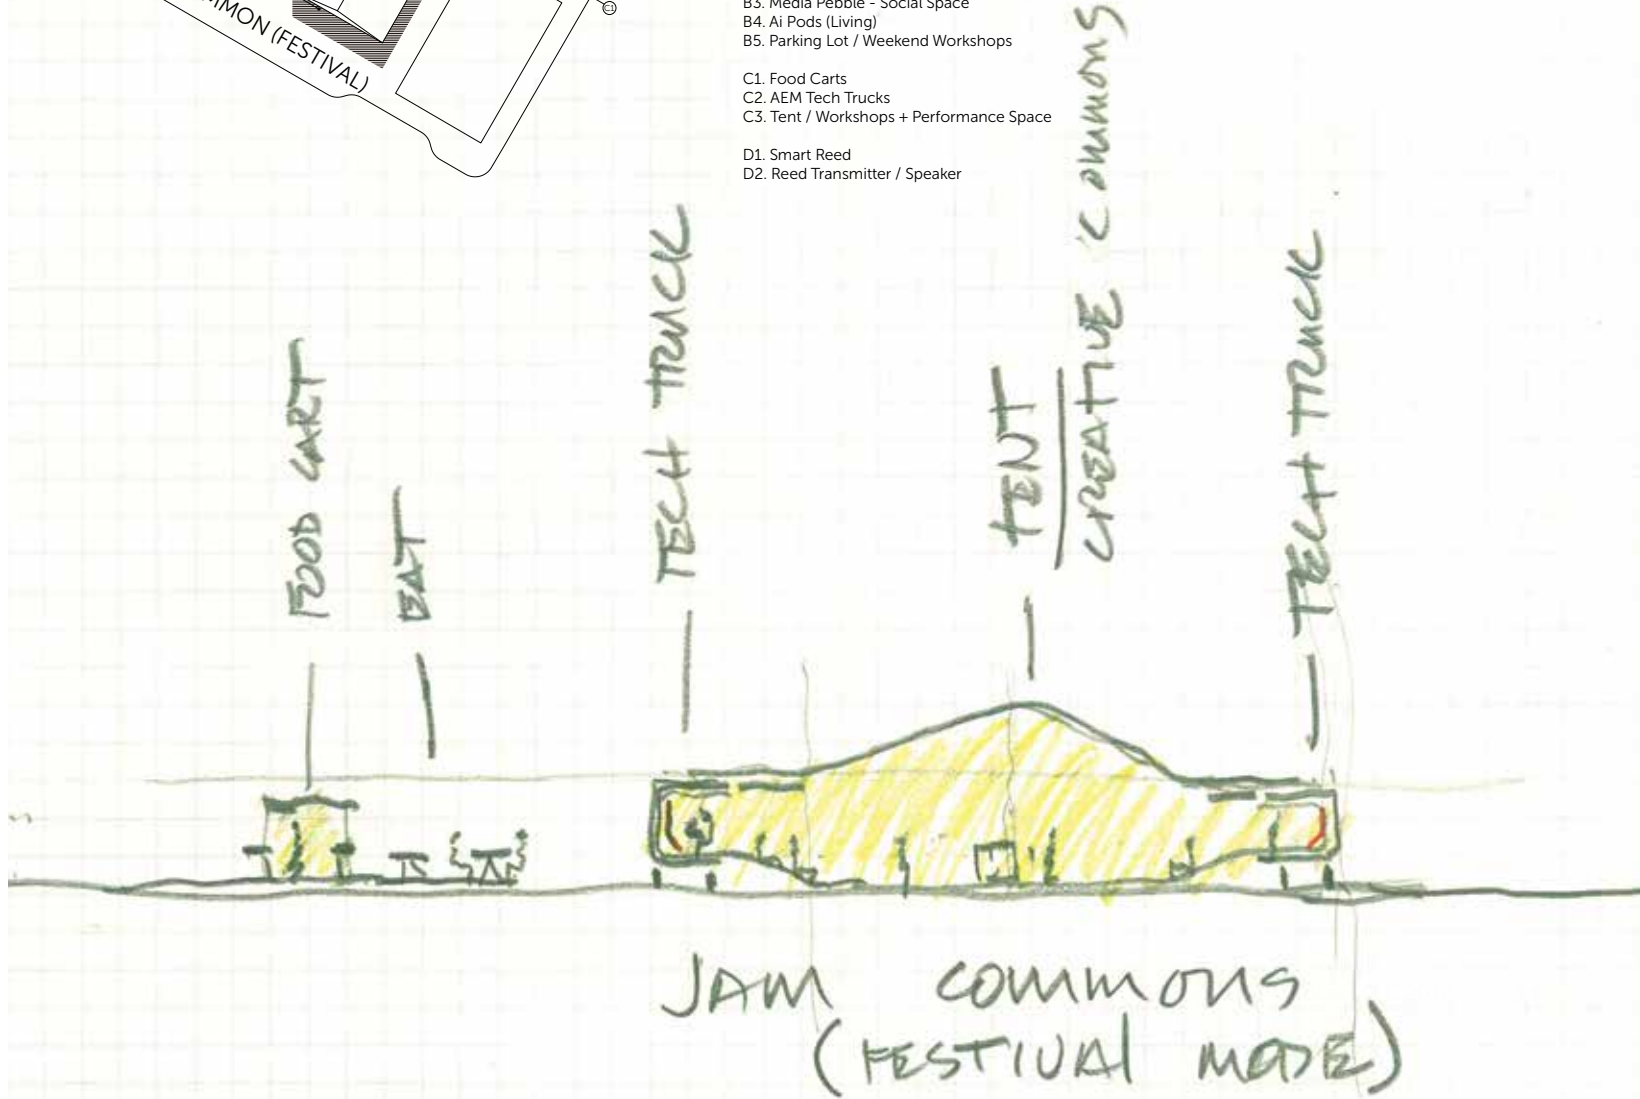 MMON (FESTIVAL)
C1
B3. Media Pebble - Social Space
B4. Ai Pods (Living)
B5. Parking Lot / Weekend Workshops
C1. Food Carts
C2. AEM Tech Trucks
C3. Tent / Workshops + Performance Space
D1. Smart Reed
D2. Reed Transmitter / Speaker
FOOD CART
EAT
TECH TRUCK
TENT
CREATIVE COMMONS
TECH TRUCK
JAM COMMONS
(FESTIVAL MODE)